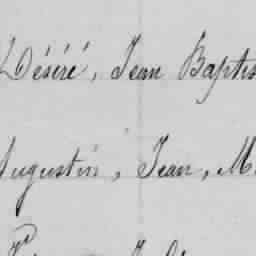 Désiré, Jean Baptis
Augustin, Jean, M